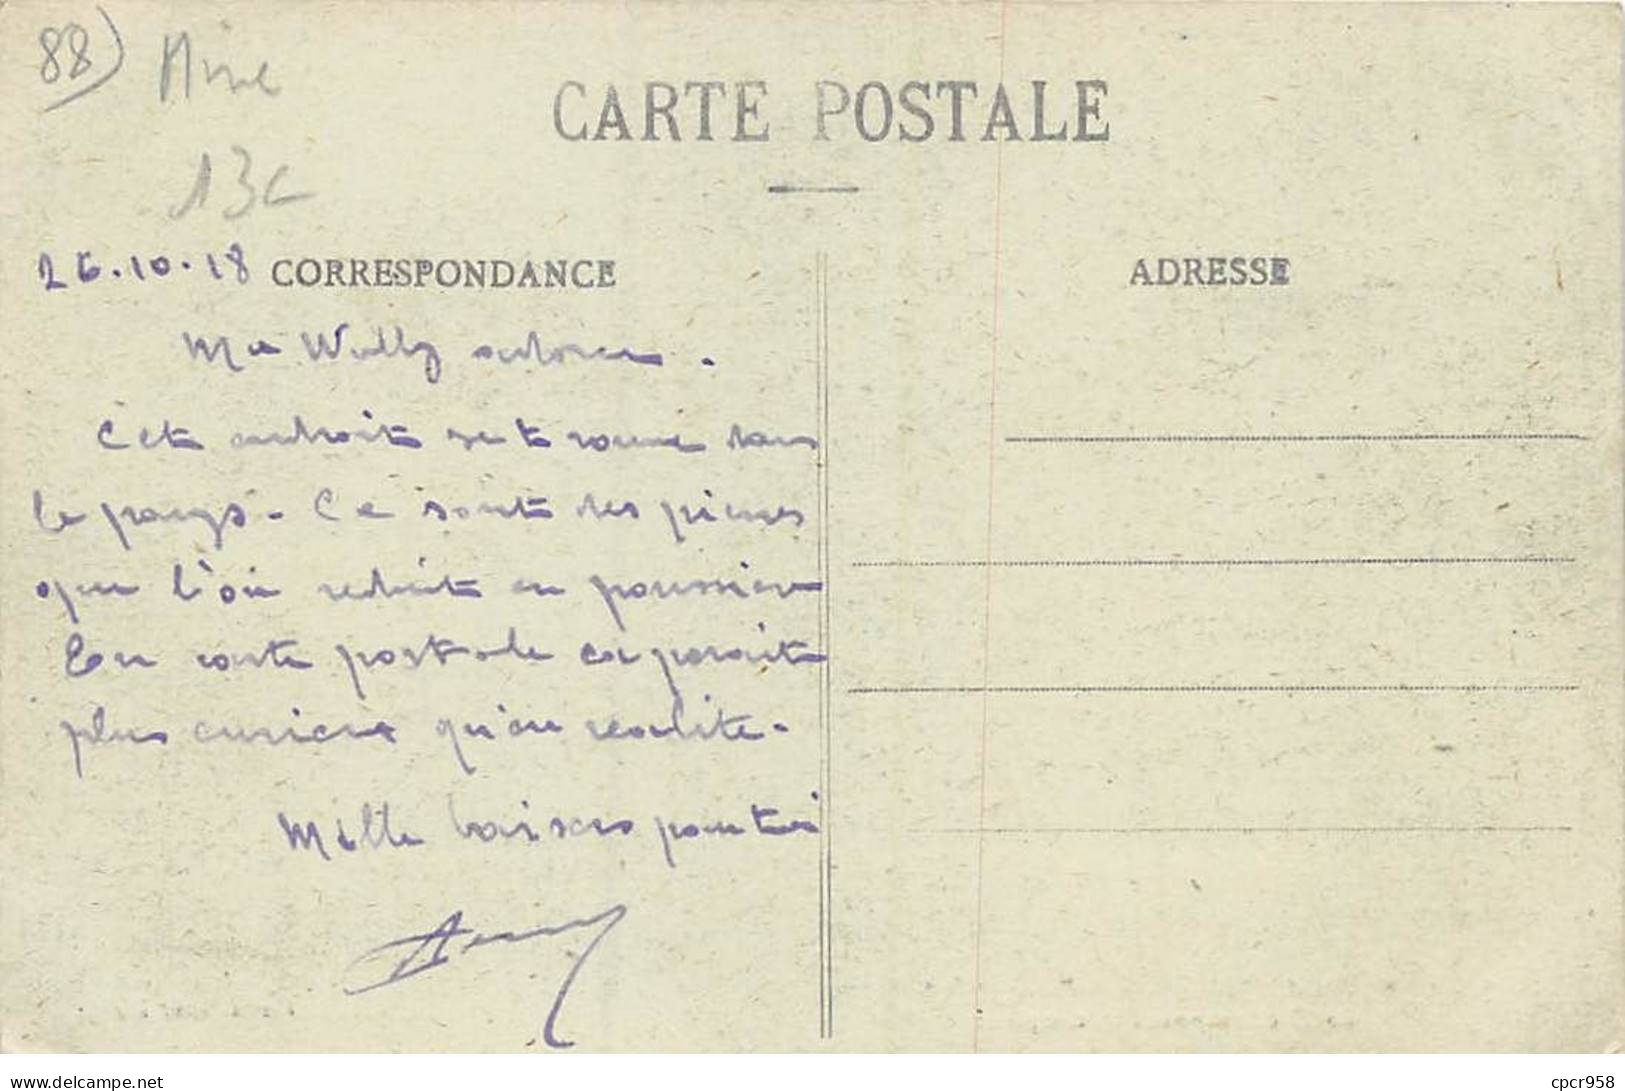 88) Mine
13€
CARTE POSTALE
26.10.18 CORRESPONDANCE
ADRESSE
Ma Willy adorée.
Cet endroit se trouve dans
le pays. Ce sont des pierres
que l'on réduit en poussière
En carte postale ça parait
plus curieux qu'en realite.
Mille baisers pour toi
delcampe.net
cpcr958